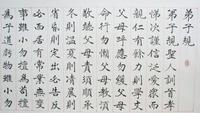 弟子規
弟子規聖人訓首孝
悌次謹信汎愛眾而
親仁有餘力則學文
父母呼應勿緩父母
命行勿懶父母教須
敬聽父母責須順承
冬則溫夏則凊晨則
省昏則定出必告反
必面居有常業無變
事雖小勿擅為苟擅
為子道虧物雖小勿